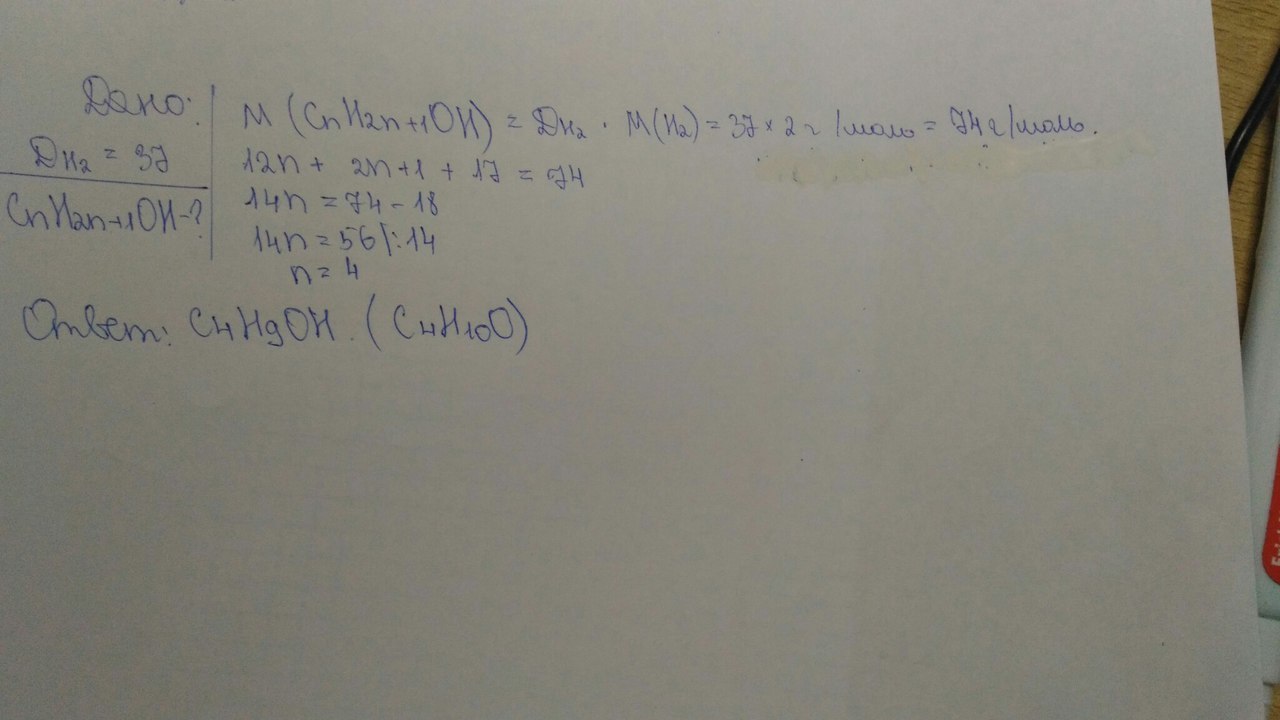 Дано:
D н2 = 37
CnH2n+1OH-?
M (CnH2n+1OH) = Dн2 · M(H2) = 37 × 2 г/моль = 74 г/моль.
12n + 2n+1 + 17 = 74
14n = 74 - 18
14n = 56 |:14
n = 4
Ответ: C4H9OH. (C4H10O)